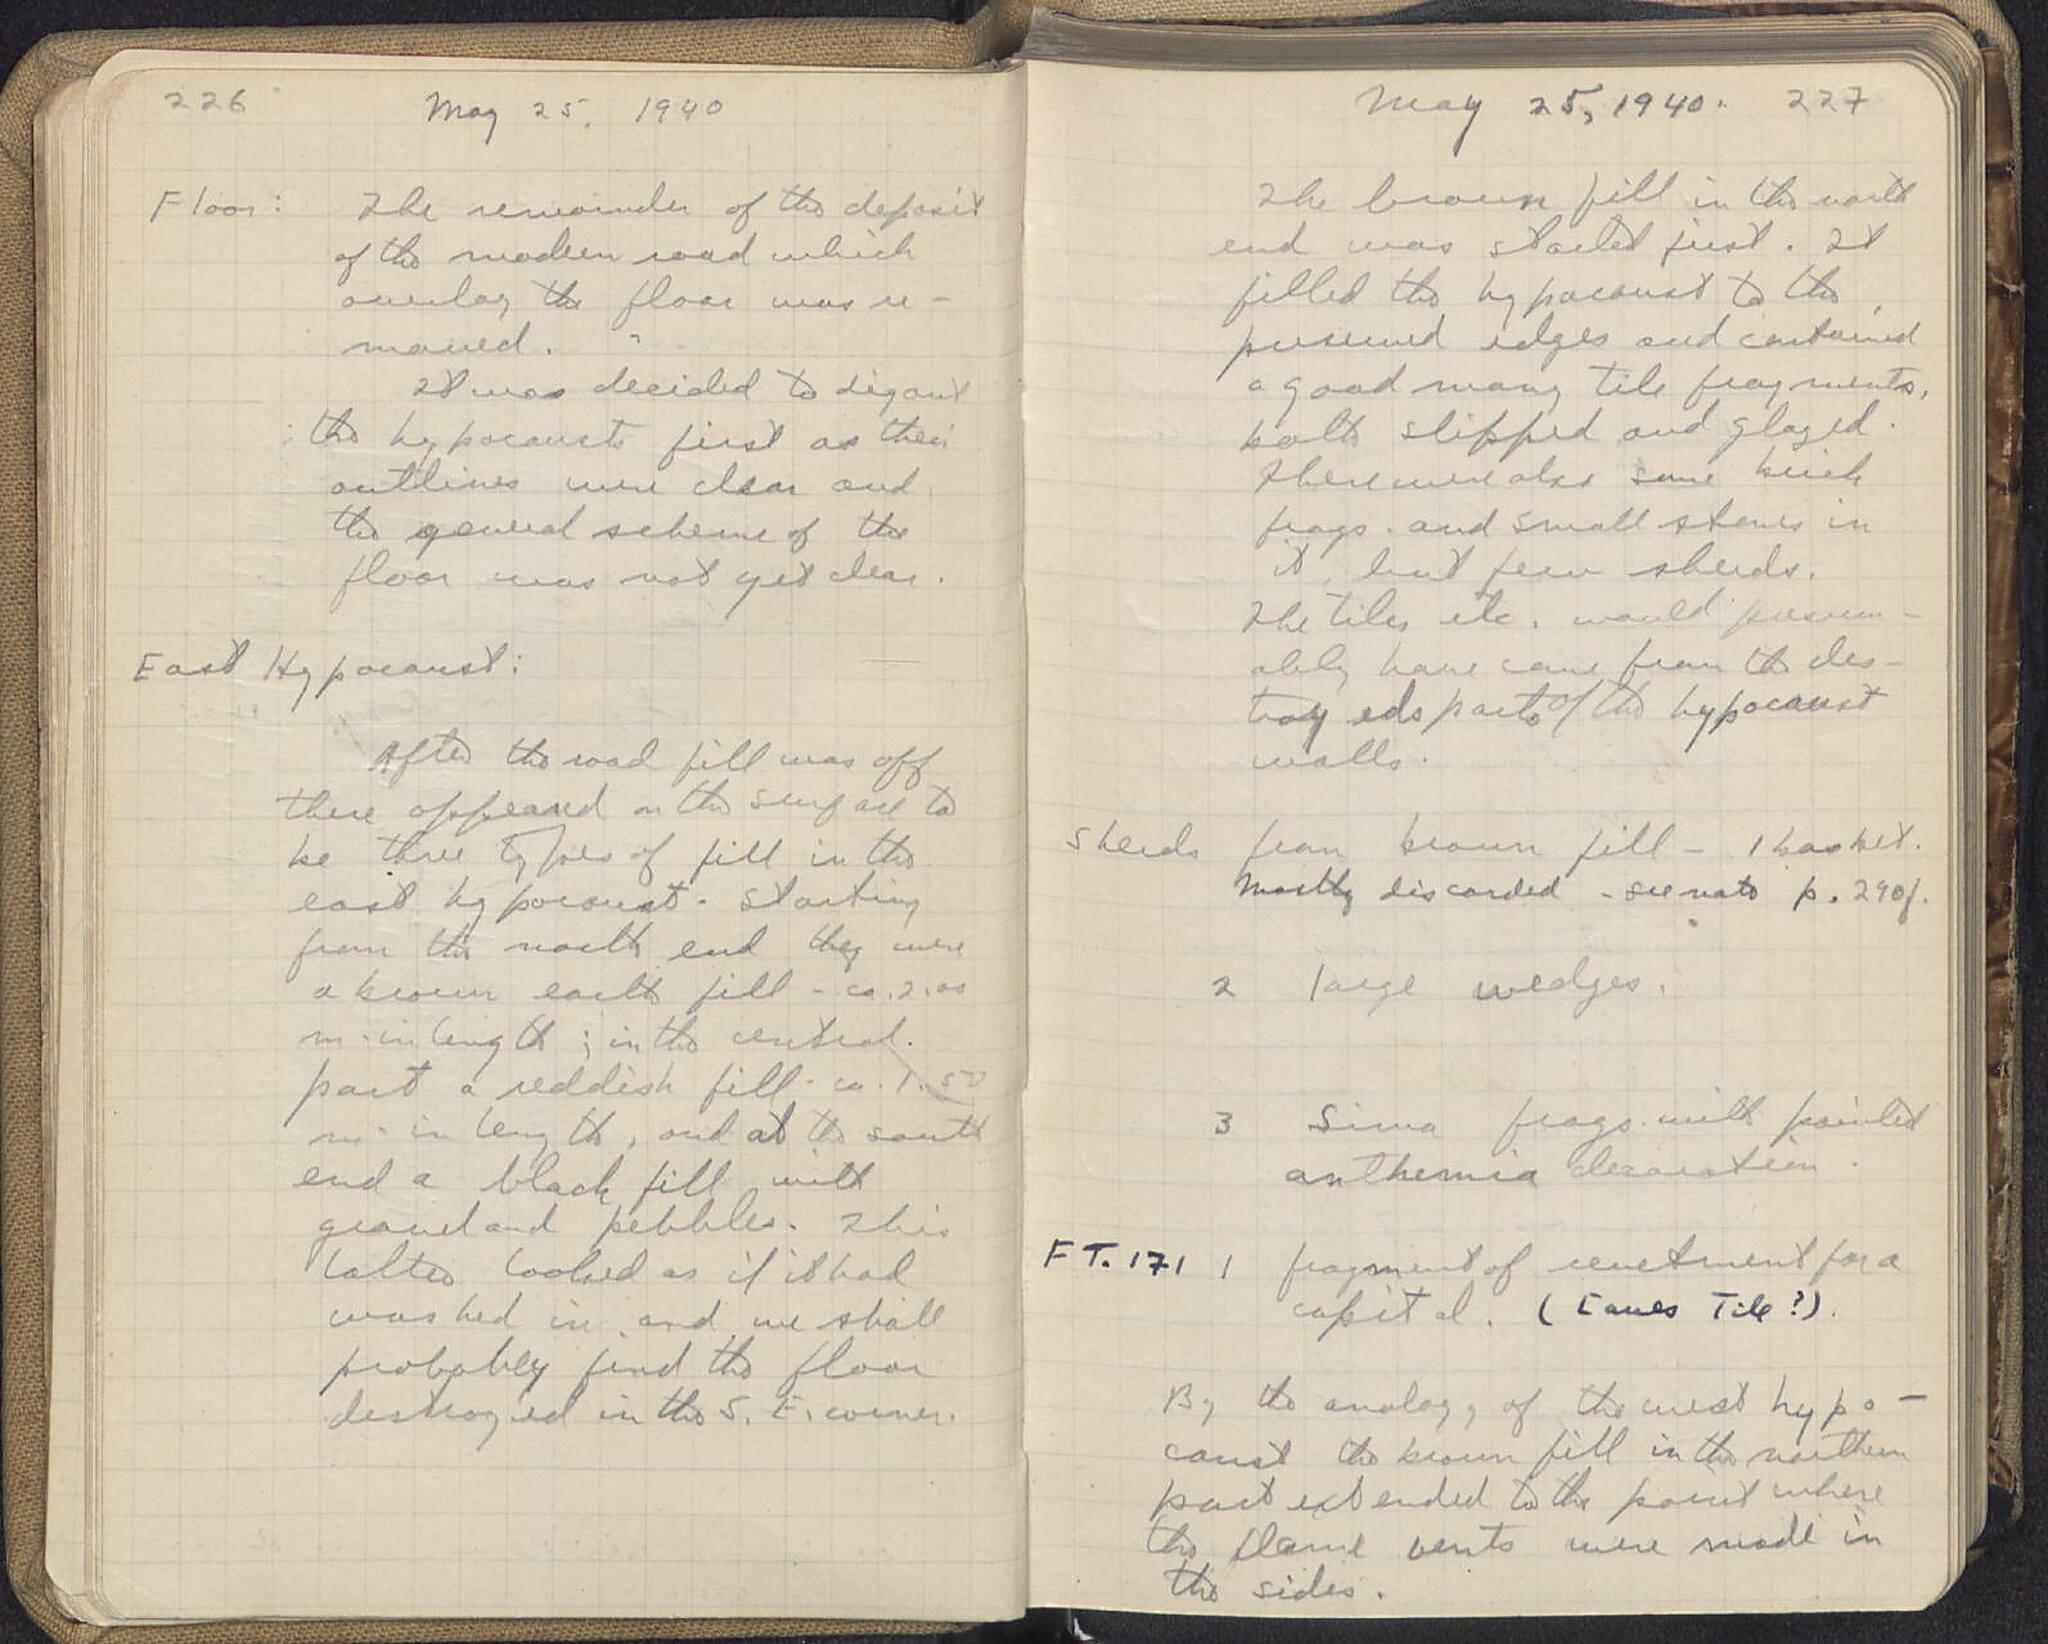 226
May 25, 1940
Floor: The remainder of the deposit
of the modern road which
overlay the floor was re-
moved.
It was decided to dig out
the hypocausts first as their
outlines were clear and
the general scheme of the
floor was not yet clear.
East Hypocaust:
After the road fill was off
there appeared on the surface to
be three types of fill in the
east hypocaust. Starting
from the north end they were
a brown earth fill - ca. 2.00
m. in length; in the central
part a reddish fill - ca. 1.50
m. in length, and at the south
end a black fill with
gravel and pebbles. This
latter looked as if it had
washed in and we shall
probably find the floor
destroyed in the S. E. corner.
May 25, 1940. 227
The brown fill in the north
end was started first. It
filled the hypocaust to the
preserved edges and contained
a good many tile fragments,
both slipped and glazed.
There were also some brick
frags. and small stones in
it, but few sherds.
The tiles etc. would presum-
ably have come from the des-
troyed parts of the hypocaust
walls.
Sherds from brown fill - 1 basket.
Mostly discarded - see note p. 290f.
2 large wedges.
3 Sima frags. with painted
anthemia decoration.
FT. 171 1 fragment of revetment for a
capital. (Eaves Tile?).
By the analogy of the west hypo-
caust the brown fill in the northern
part extended to the point where
the flame vents were made in
the sides.